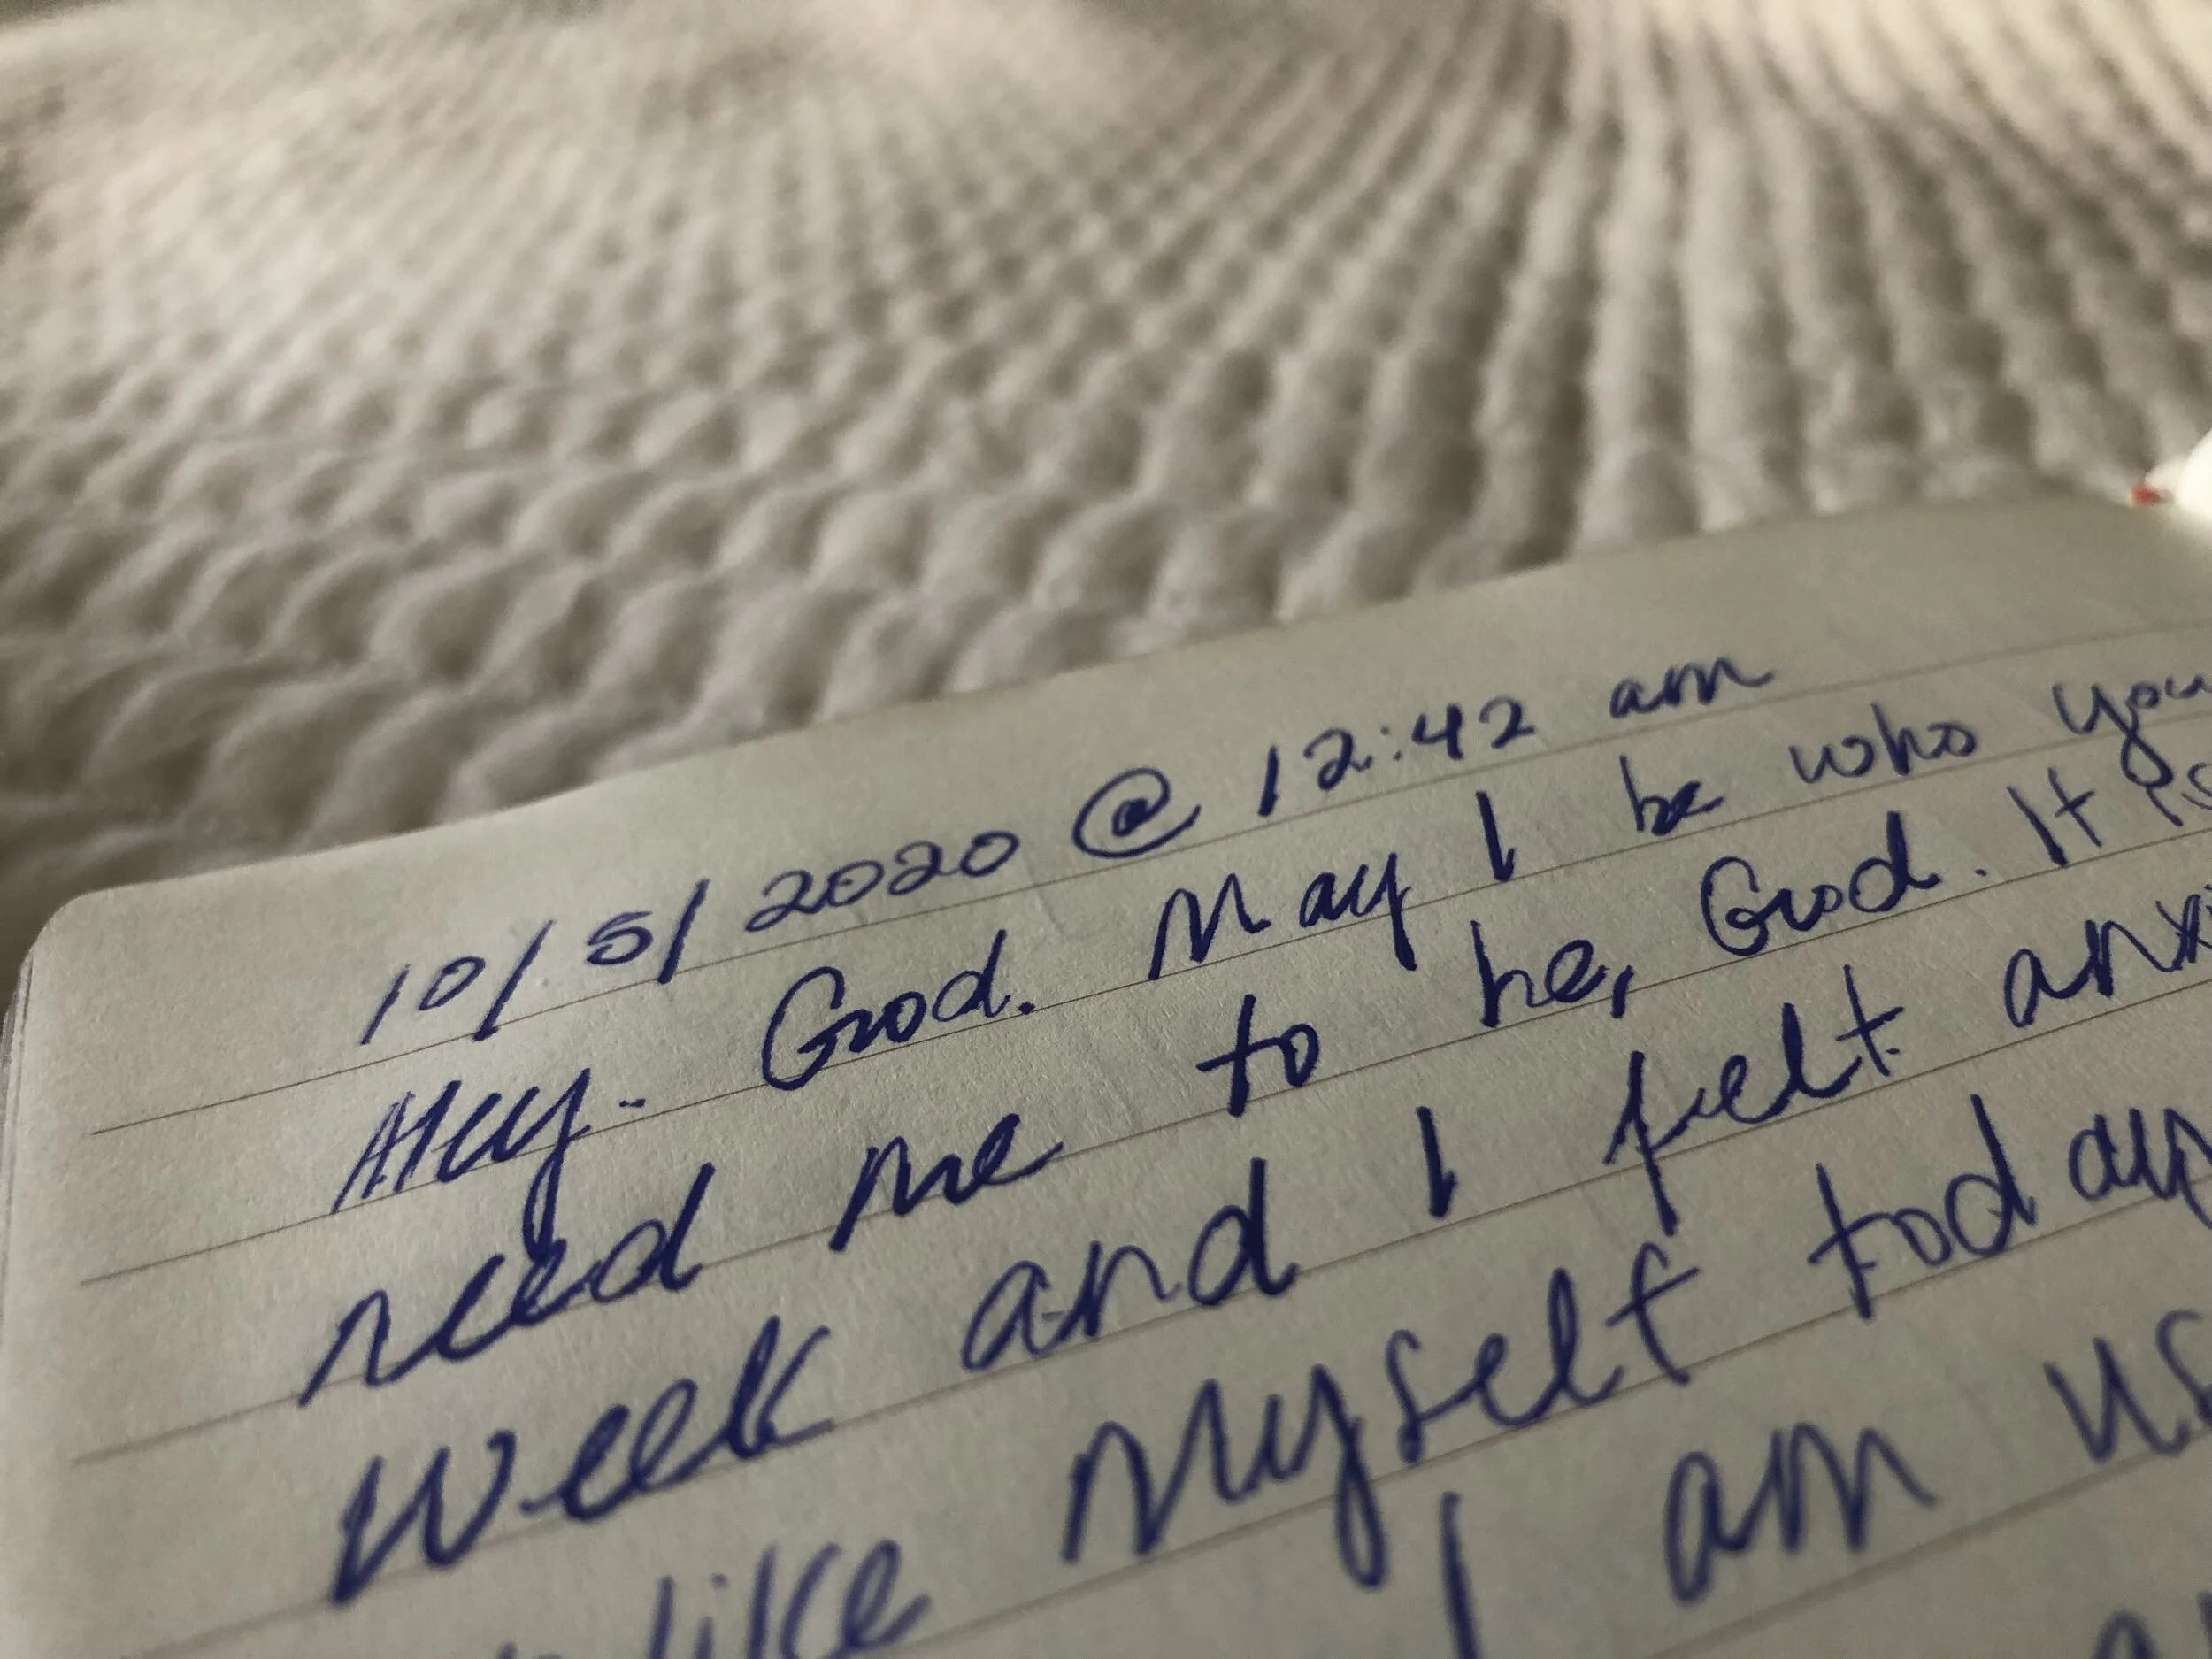 10/5/2020 @ 12:42 am
Hey. God. May I be who you
need me to be, God. It is
week and I felt anxi
like myself today
I am us